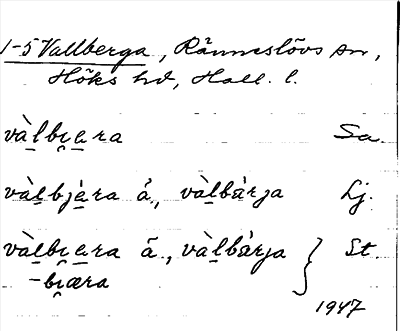 1-5 Vallberga, Ränneslövs sn,
Höks hd, Hall. l.
vàl̲bi̯a̲ra Sa.
vàl̲bjȧ̲ra ȧ., vàl̲bȧrja Lj.
vàl̲bi̯a̲ra ā., vàl̲bȧrja } St.
-bi̯æra
1947